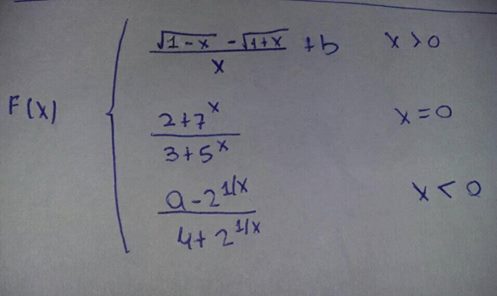 F(x) { (√(1-x) - √(1+x))/x + b    x > 0
(2+7^x)/(3+5^x)    x = 0
(a-2^(1/x))/(4+2^(1/x))    x < 0